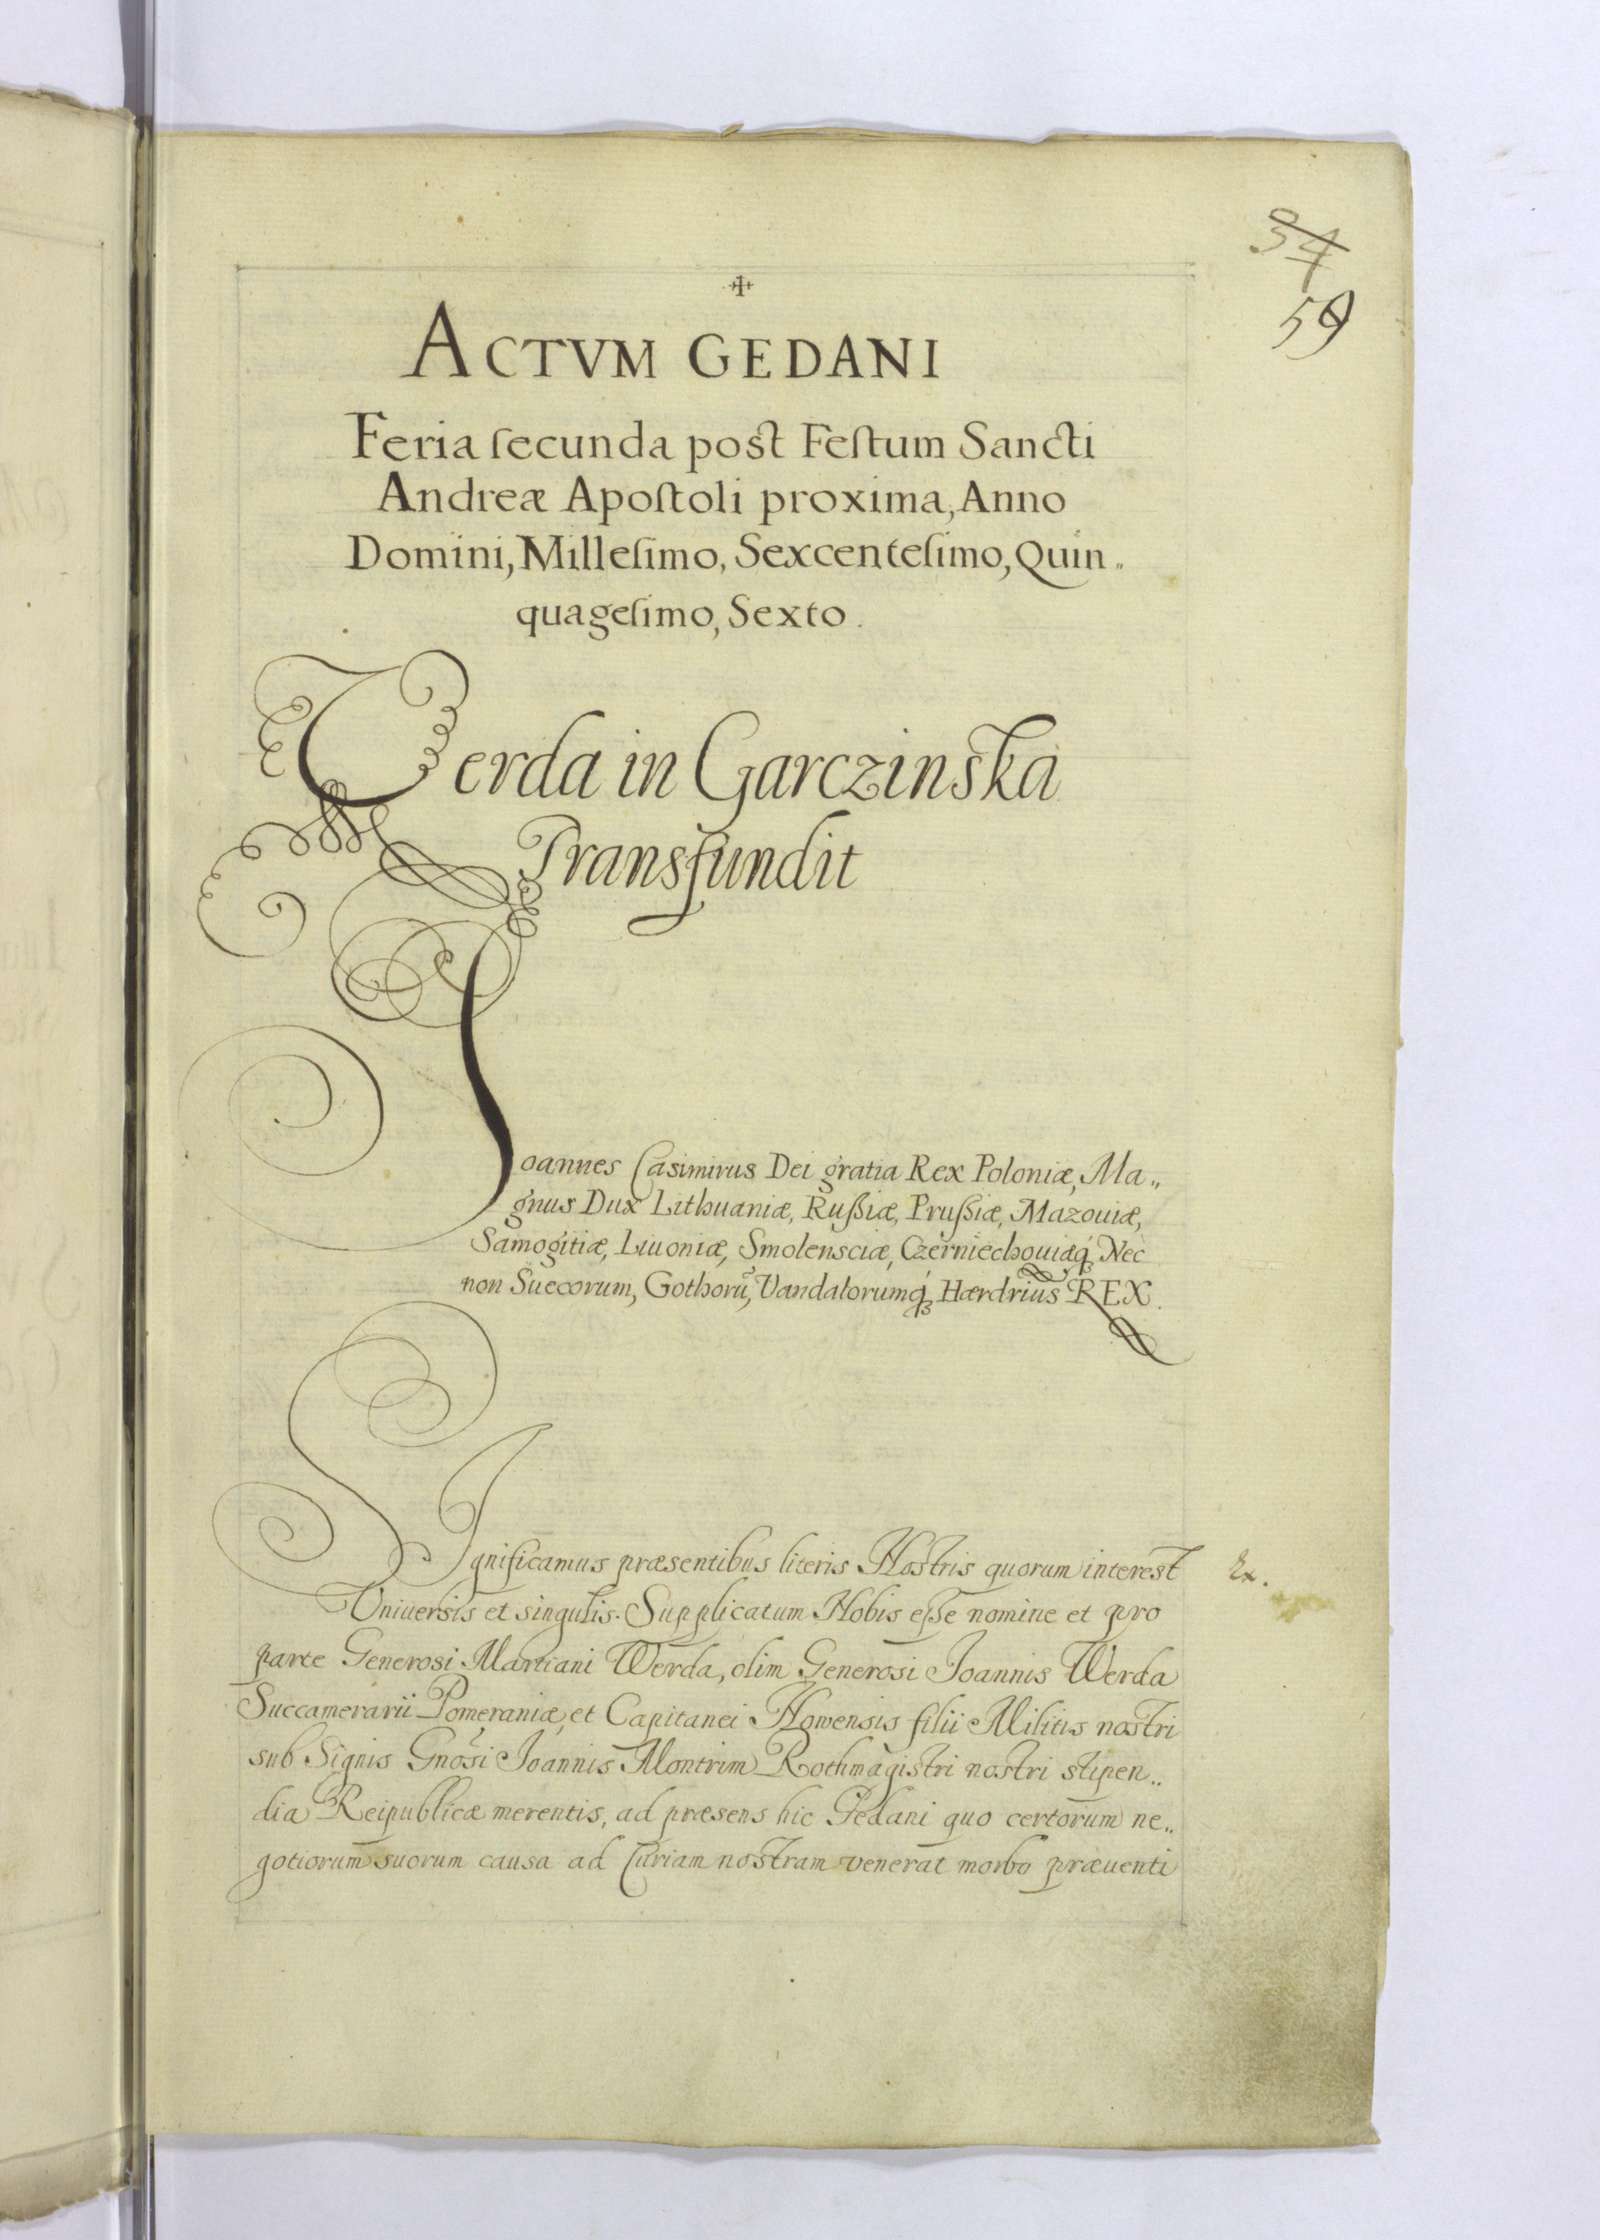 34
59
✠
ACTVM GEDANI
Feria ſecunda poſt Feſtum Sancti
Andreæ Apoſtoli proxima, Anno
Domini, Milleſimo, Sexcenteſimo, Quin„
quageſimo, Sexto.
Verda in Garczinska
Transfundit
Joannes Casimirus Dei gratia Rex Poloniæ, Ma„
gnus Dux Lithuaniæ, Rußiæ, Prußiæ, Mazouiæ,
Samogitiæ, Liuoniæ, Smolensciæ, Czerniechouiæq́ꝫ Nec
non Suecorum, Gothorũ, Vandalorumq́ꝫ Hærdrius REX.
Significamus præsentibus literis Nostris quorum interest
Vniuersis et singulis. Supplicatum Nobis eße nomine et pro
parte Generosi Martiani Werda, olim Generosi Joannis Werda
Succamerarii Pomeraniæ, et Capitanei Nowensis filii Militis nostri
sub Signis Gnosi Joannis Montrim Rothmagistri nostri stipen„
dia Reipublicæ merentis, ad præsens hic Gedani quo certorum ne„
gotiorum suorum causa ad Curiam nostram venerat morbo præuenti